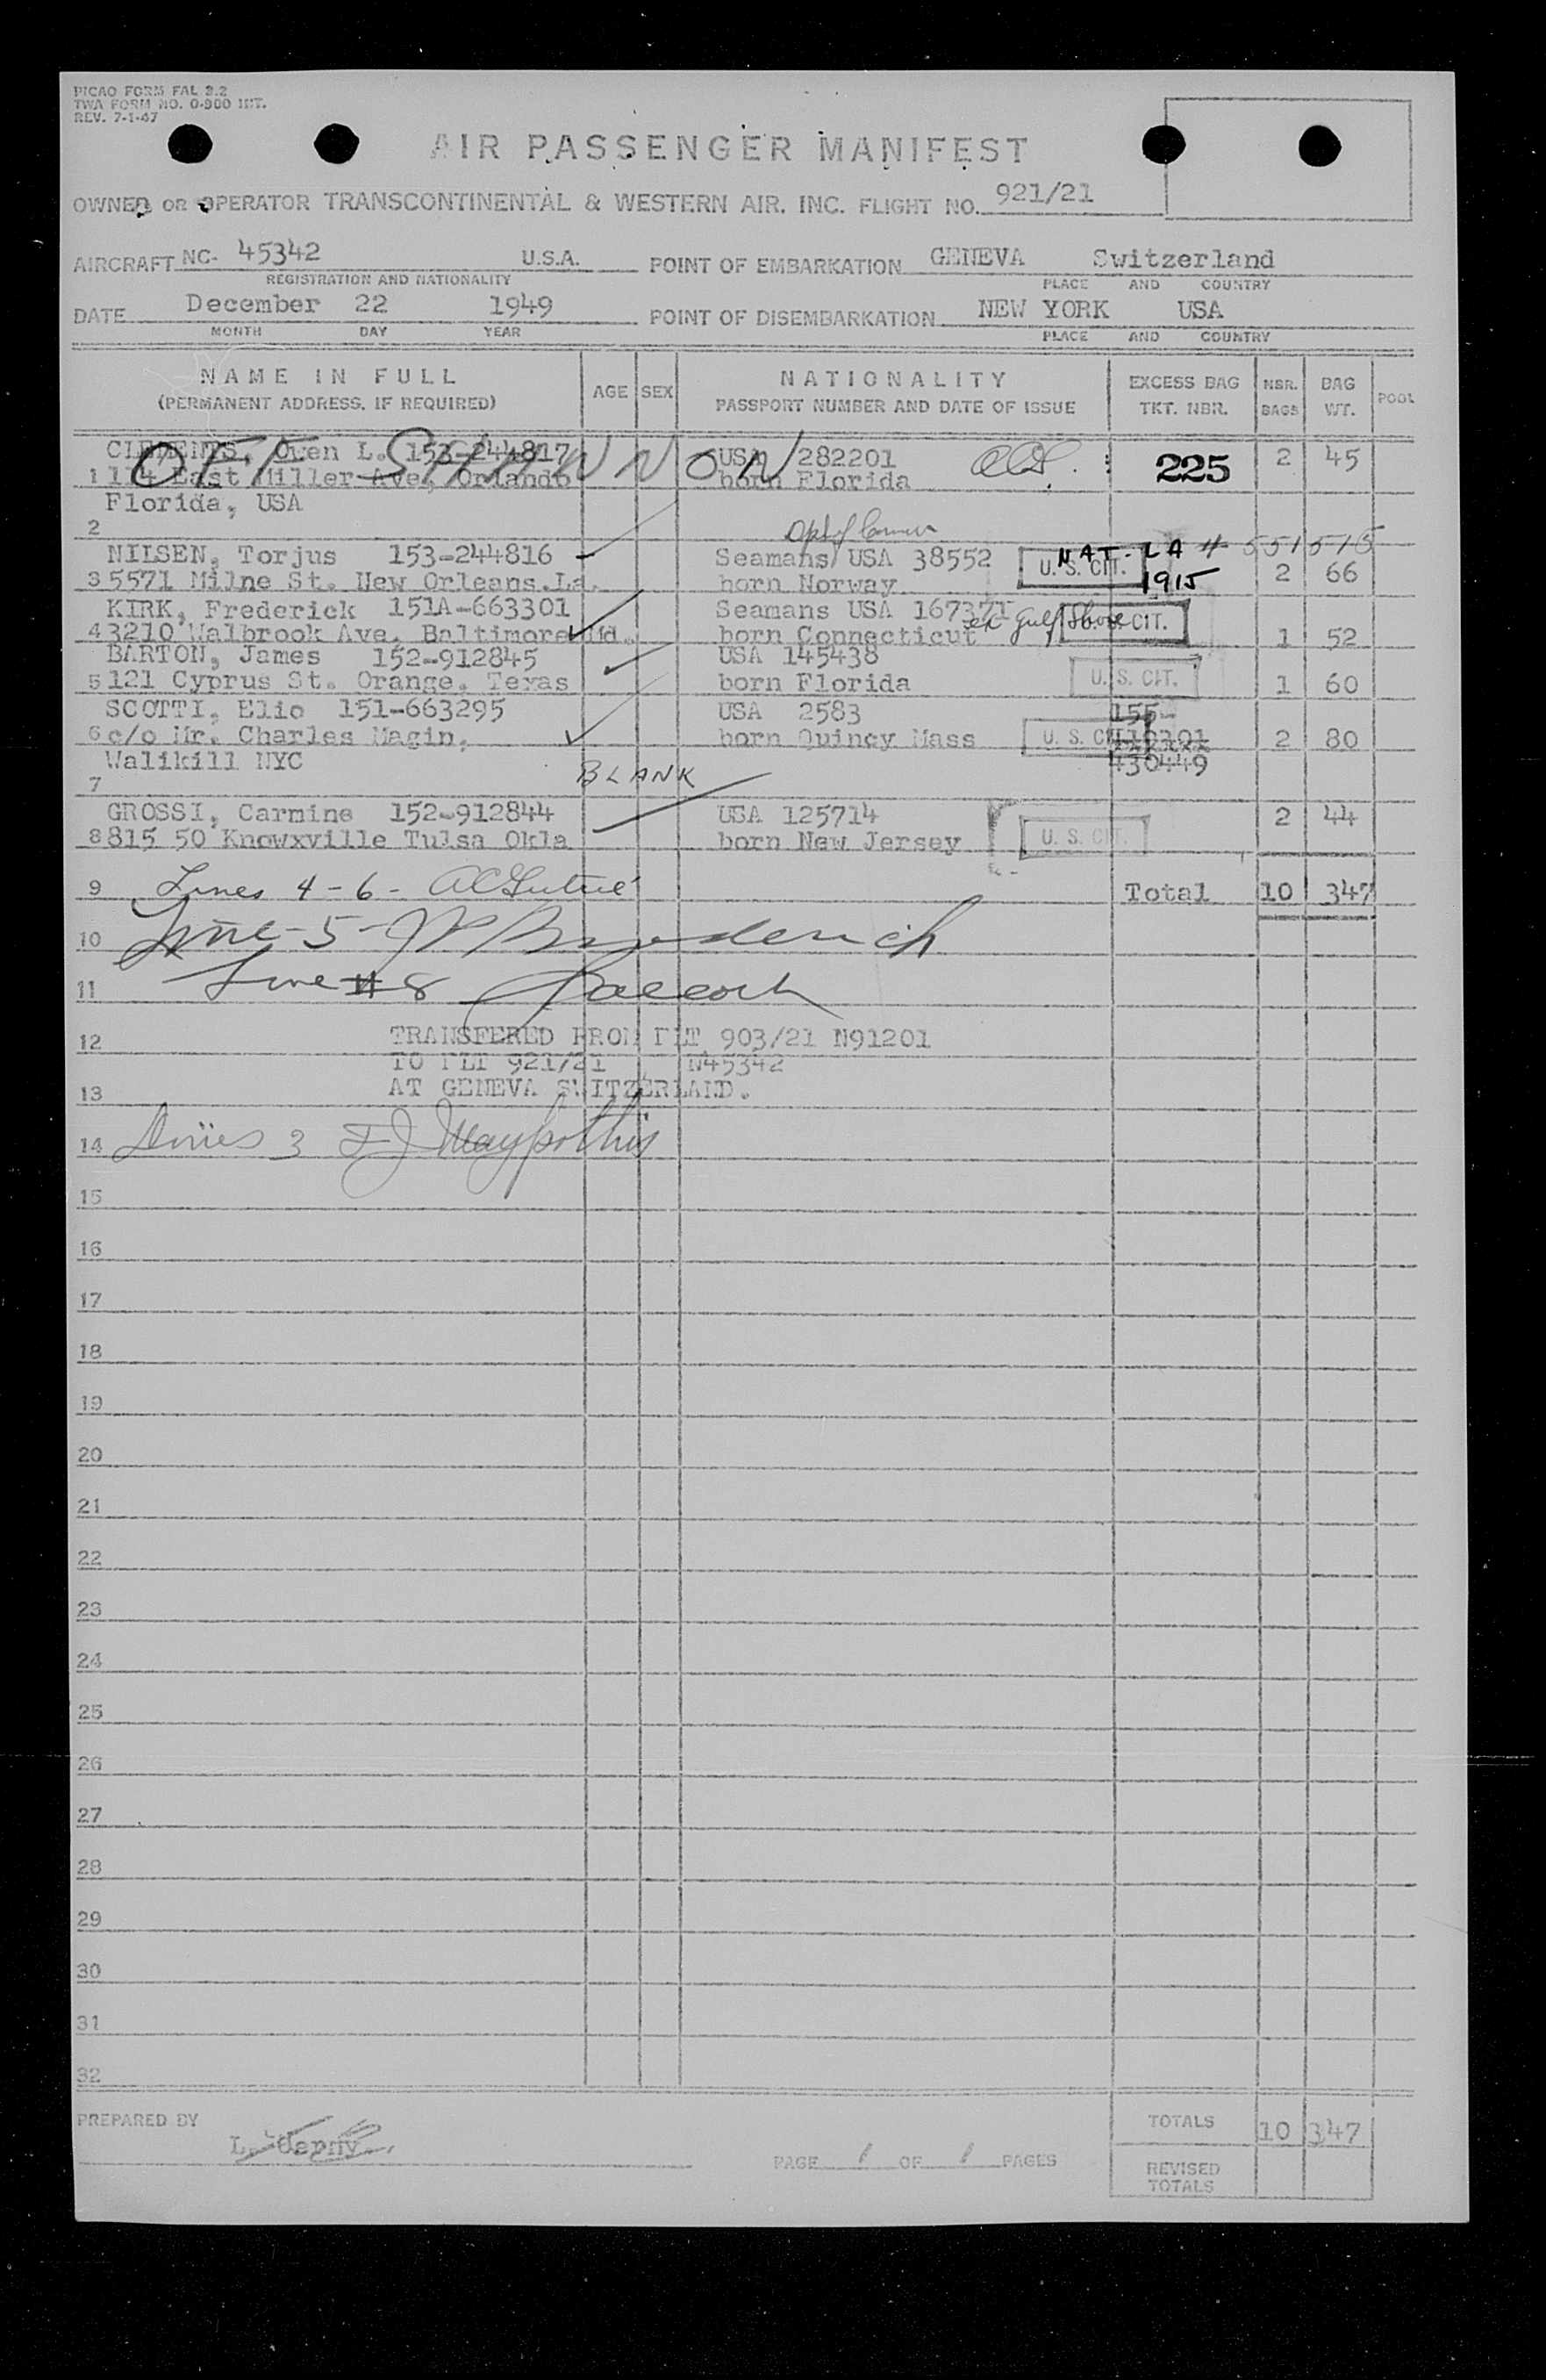 PICAO FORM FAL 3.2
TWA FORM NO. 0-900 INT.
REV. 7-1-47
AIR PASSENGER MANIFEST
OWNER OR OPERATOR TRANSCONTINENTAL & WESTERN AIR. INC. FLIGHT NO. 921/21
AIRCRAFT NC- 45342 U.S.A. POINT OF EMBARKATION GENEVA Switzerland
REGISTRATION AND NATIONALITY PLACE AND COUNTRY
DATE December 22 1949 POINT OF DISEMBARKATION NEW YORK USA
MONTH DAY YEAR PLACE AND COUNTRY
NAME IN FULL AGE SEX NATIONALITY EXCESS BAG NBR. BAG POOL
(PERMANENT ADDRESS, IF REQUIRED) PASSPORT NUMBER AND DATE OF ISSUE TKT. NBR. BAGS WT.
CLEMENTS, Owen L. 153-244817 USA 282201 2 45
OFF SHANNON 225
1 114 East Miller Ave, Orlando born Florida
Florida, USA
2
NILSEN, Torjus 153-244816 Seamans USA 38552 U.S. CIT. NAT- LA # 551515
3 5571 Milne St. New Orleans.La. born Norway 1915 2 66
KIRK, Frederick 151A-663301 Seamans USA 167371
4 3210 Walbrook Ave. Baltimore Md. born Connecticut Gulf Shore CIT. 1 52
BARTON, James 152-912845 USA 145438
5 121 Cyprus St. Orange. Texas born Florida U.S. CIT. 1 60
SCOTTI, Elio 151-663295 USA 2583 155-
6 c/o Mr. Charles Magin, born Quincy Mass U.S. 2 80
Walikill NYC 430449
7 BLANK
GROSSI, Carmine 152-912844 USA 125714 2 44
8 815 50 Knowxville Tulsa Okla born New Jersey U.S. CIT.
9 Lines 4-6- Total 10 347
10 Line-5-
11 Line #8
12 TRANSFERED FROM FLT 903/21 N91201
TO FLT 921/21 N45342
13 AT GENEVA SWITZERLAND.
14 Lines 3
15
16
17
18
19
20
21
22
23
24
25
26
27
28
29
30
31
32
PREPARED BY TOTALS 10 347
PAGE 1 OF 1 PAGES REVISED
TOTALS